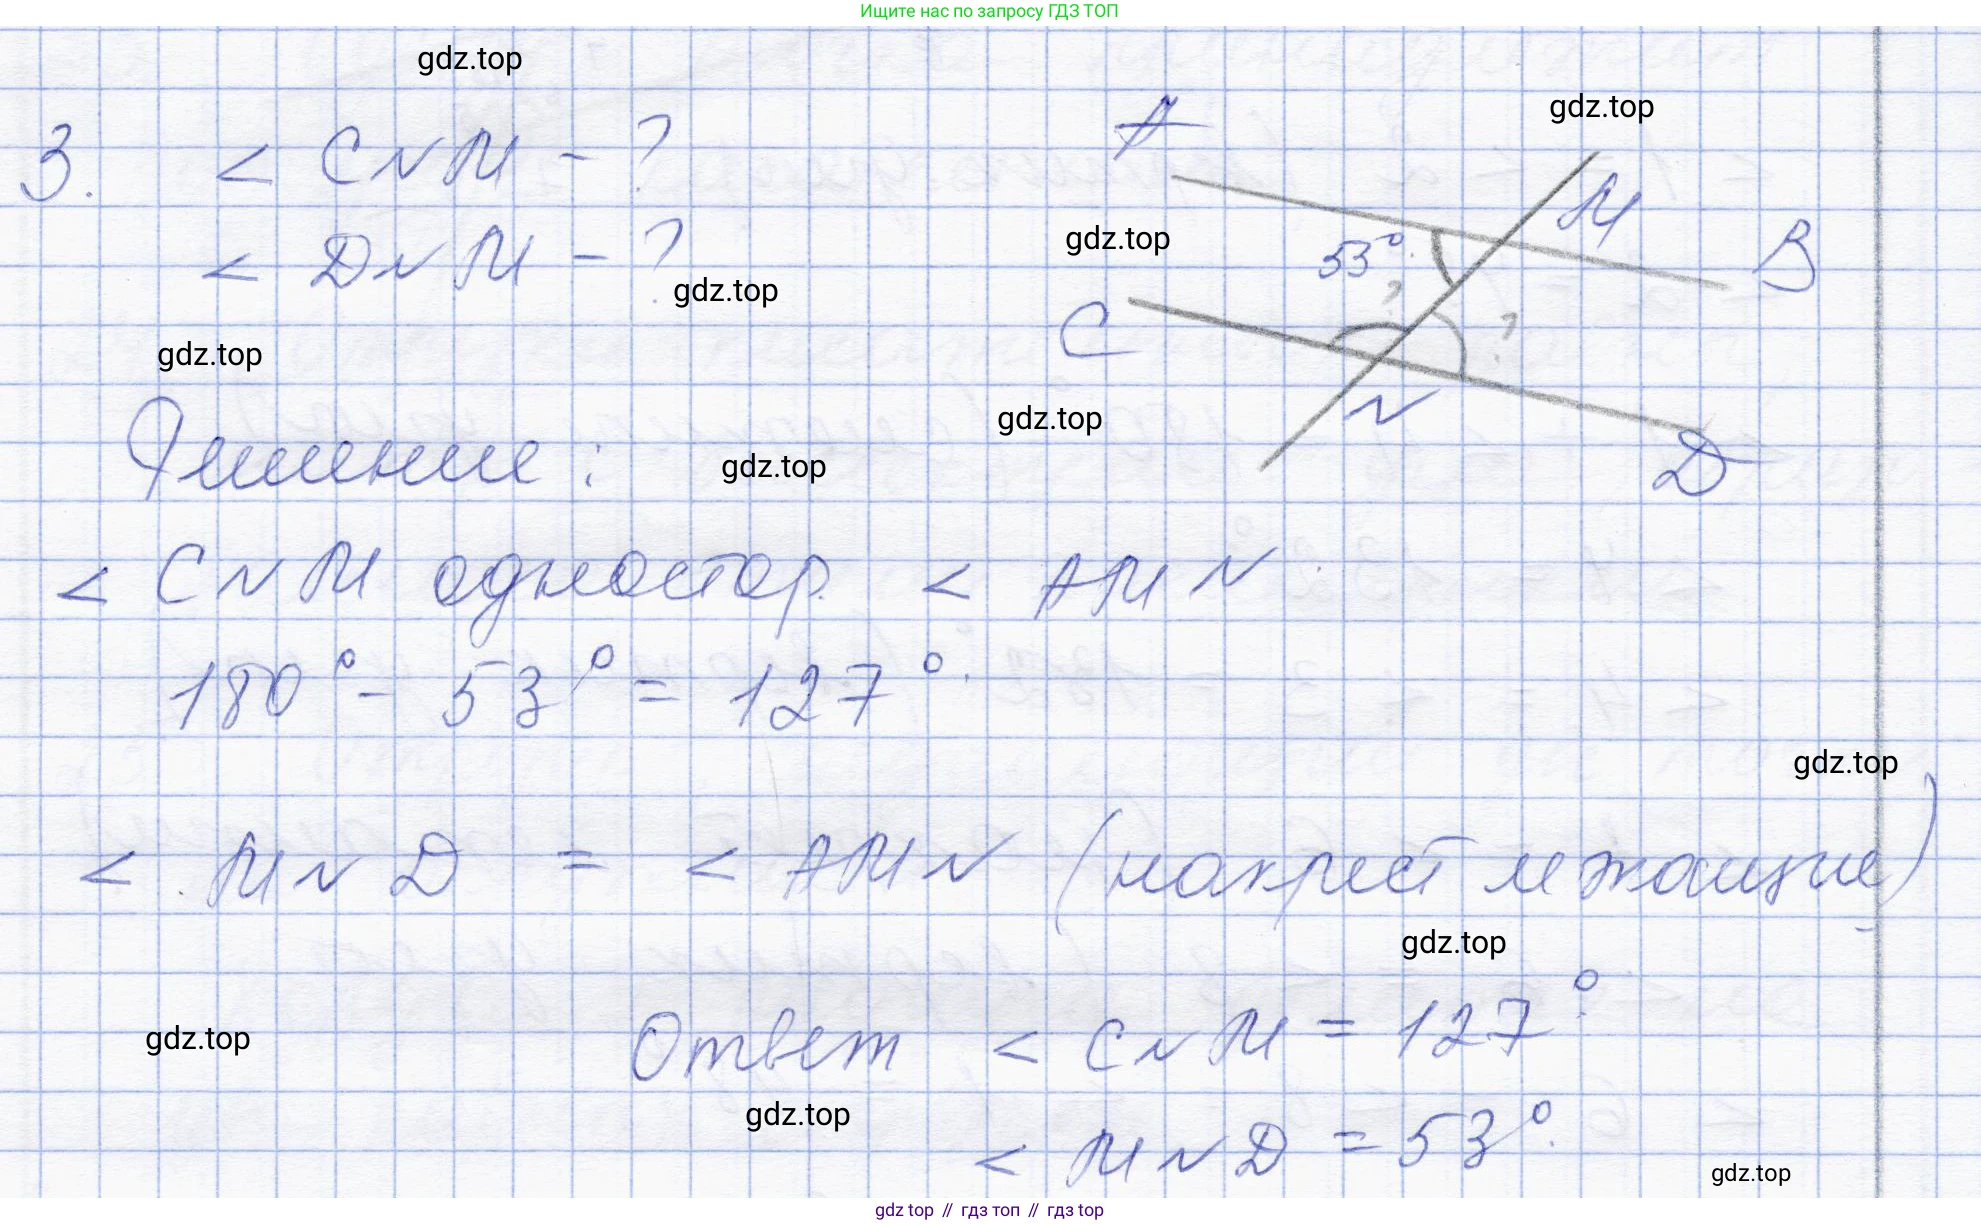 Ищите нас по запросу ГДЗ ТОП
gdz.top
gdz.top
3. < CNM - ?
A
M
B
< DNM - ?
53°
gdz.top
gdz.top
?
?
C
gdz.top
N
gdz.top
D
Решение:
gdz.top
< CNM одностор. < AMN.
180° - 53° = 127°.
gdz.top
< MND = < AMN (накрест лежащие)
gdz.top
gdz.top
Ответ < CNM = 127°.
gdz.top
< MND = 53°.
gdz.top
gdz top // гдз топ // гдз top